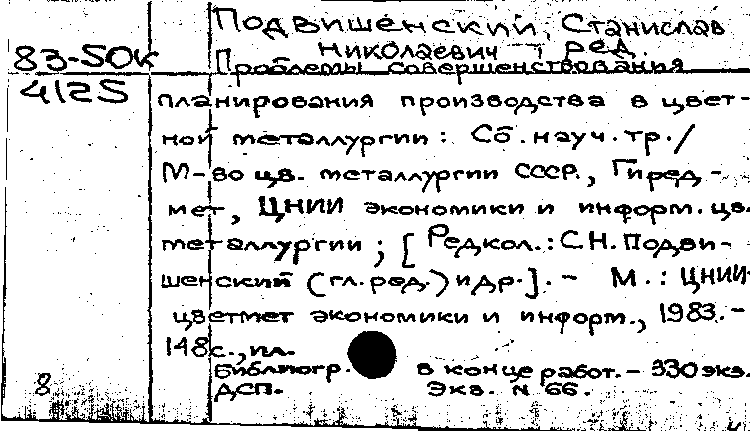 Подвишенский, Станислав
Николаевич, ред.
83-50к Проблемы совершенствования
4125 планирования производства в цвет-
ной металлургии : Сб. науч. тр. /
М-во цв. металлургии СССР., Гиред-
мет, ЦНИИ экономики и информ. цв.
металлургии ; [ Редкол.: С.Н. Подви-
шенский (гл. ред.) и др. ]. - М. : ЦНИИ
цветмет экономики и информ., 1983. -
148 с., ил.
Библиогр. в конце работ. - 330 экз.
8 ДСП. Экз. N 66.